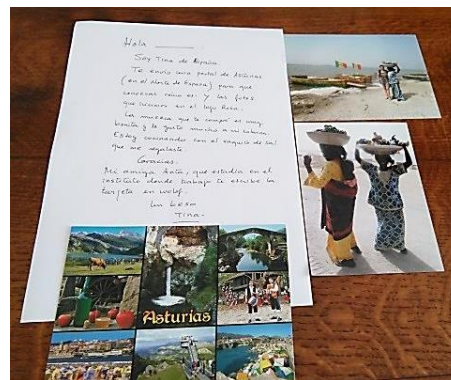 Hola
Soy Tina de España.
Te envío una postal de Asturias
(en el Norte de España) para que
conozcas cómo es. Y las fotos
que hicimos en el lago Rosa.
La muñeca que te compré es muy
bonita y le gustó mucho a mi sobrina.
Estoy cocinando con el saquito de sal
que me regalaste.
Gracias.
Mi amiga que estudia en el
instituto donde trabajo te escribe la
tarjeta en wolof.
Un beso
Tina
Asturias